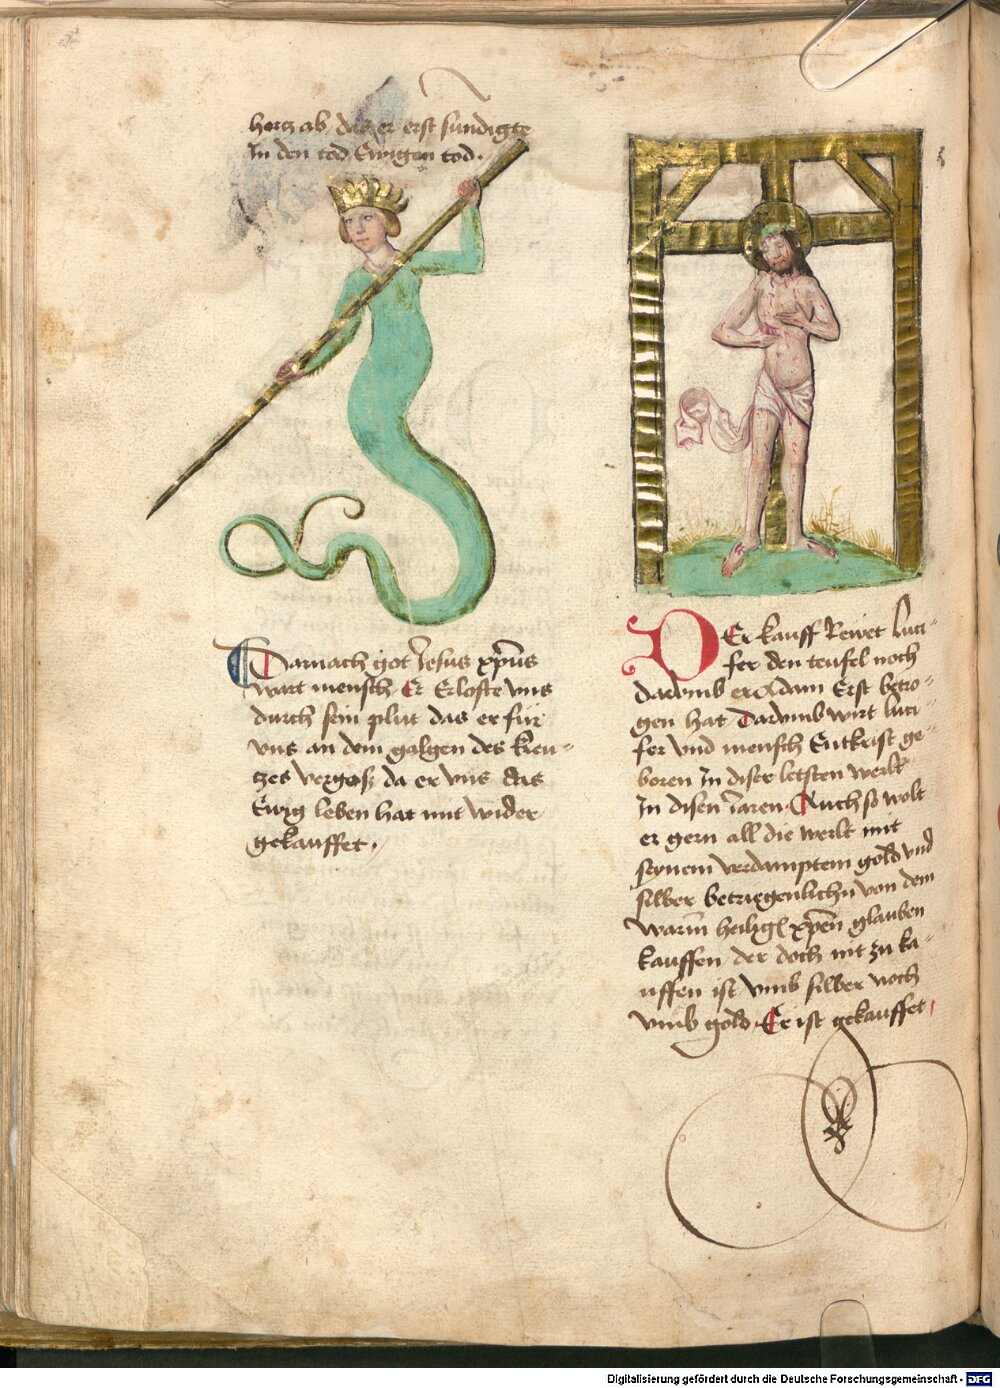 hertz ab das er erst sundigte
In den tod Ewigen tod.
Darnach got Jesus xpūs
wart mensch Er Erloste vns
durch sein plut das er für
vns an dem galgen des kreu-
tzes vergosz da er vns das
Ewig leben hat mit wider
gekauffet.
DEr kauff Rewet Luci-
fer den teufel noch
darvmb er Adam Erst betro-
gen hat Darvmb wirt luci-
fer vnd mensch Entkrist ge-
boren In diser letsten werlt
In disen Jaren. Auch so wolt
er gern all die werlt mit
seynem verdamptem gold vnd
silber betriegenlichn von dem
warm heilig xpen glauben
kauffen der doch nit zu ka-
uffen ist vmb silber noch
vmb gold. Er ist gekauffet
Digitalisierung gefördert durch die Deutsche Forschungsgemeinschaft - DFG